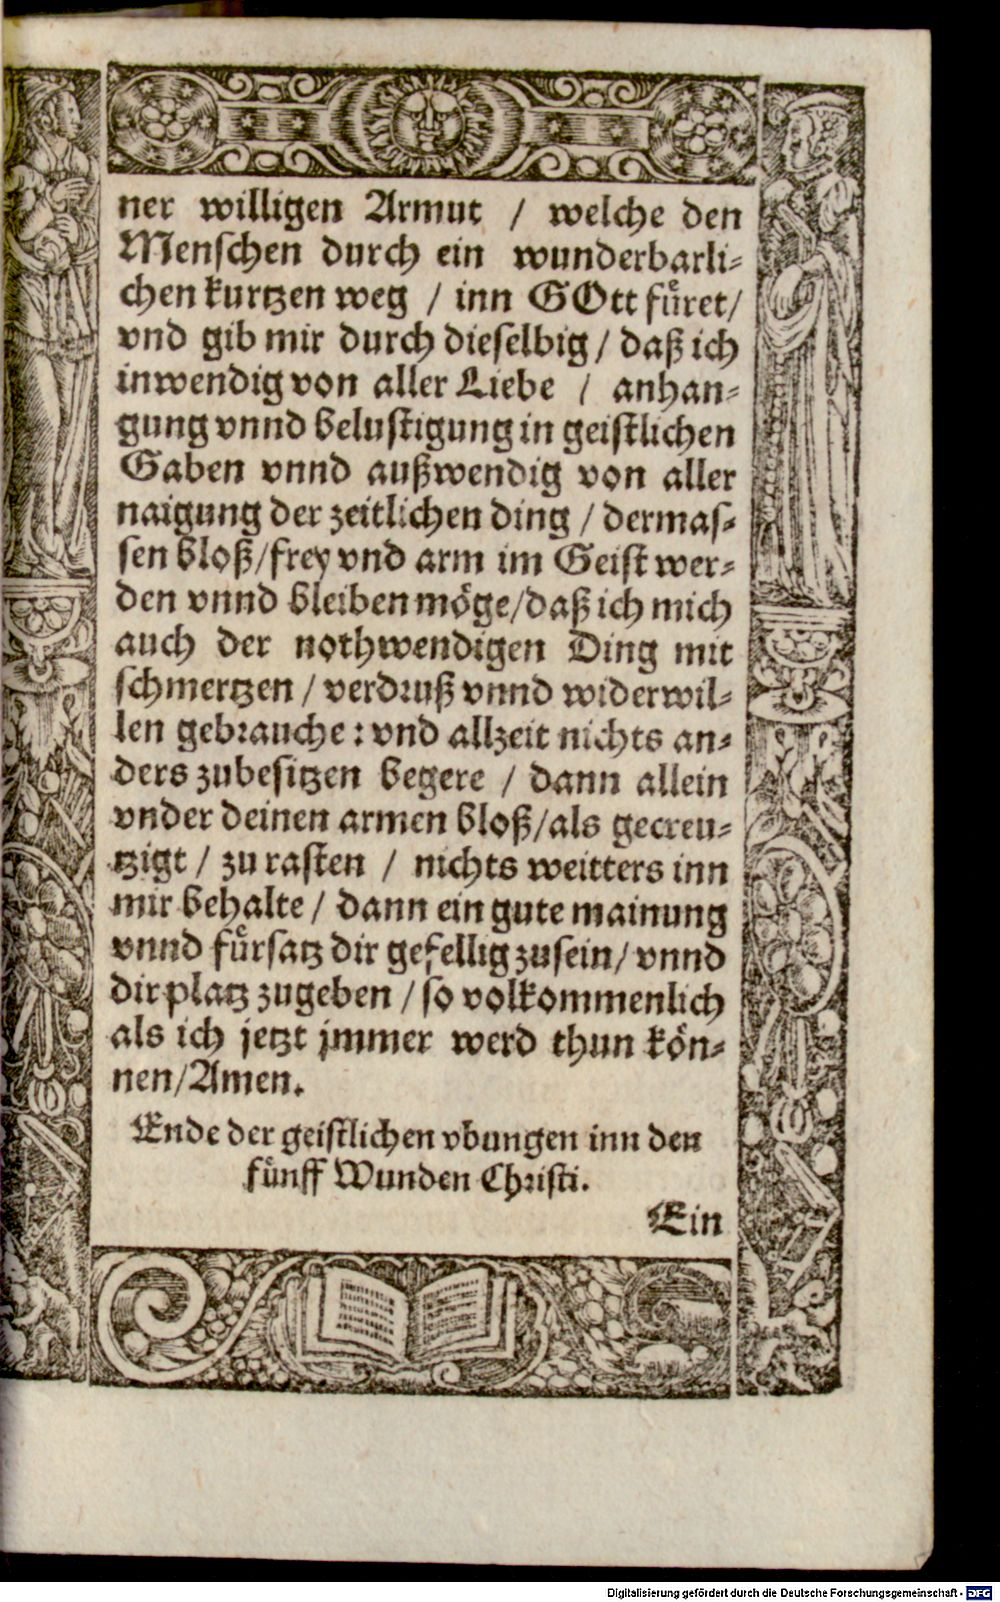 ner willigen Armut / welche den
Menschen durch ein wunderbarli-
chen kurtzen weg / inn GOtt fuͤret/
vnd gib mir durch dieselbig / daß ich
inwendig von aller Liebe / anhan-
gung vnnd belustigung in geistlichen
Gaben vnnd außwendig von aller
naigung der zeitlichen ding / dermas-
sen bloß/frey vnd arm im Geist wer-
den vnnd bleiben moͤge/daß ich mich
auch der nothwendigen Ding mit
schmertzen / verdruß vnnd widerwil-
len gebrauche: vnd allzeit nichts an-
ders zubesitzen begere / dann allein
vnder deinen armen bloß/als gecreu-
tzigt / zu rasten / nichts weitters inn
mir behalte / dann ein gute mainung
vnnd fuͤrsatz dir gefellig zusein/ vnnd
dir platz zugeben / so volkommenlich
als ich jetzt jmmer werd thun koͤn-
nen/Amen.
Ende der geistlichen vbungen inn den
fuͤnff Wunden Christi.
Ein
Digitalisierung gefördert durch die Deutsche Forschungsgemeinschaft - DFG